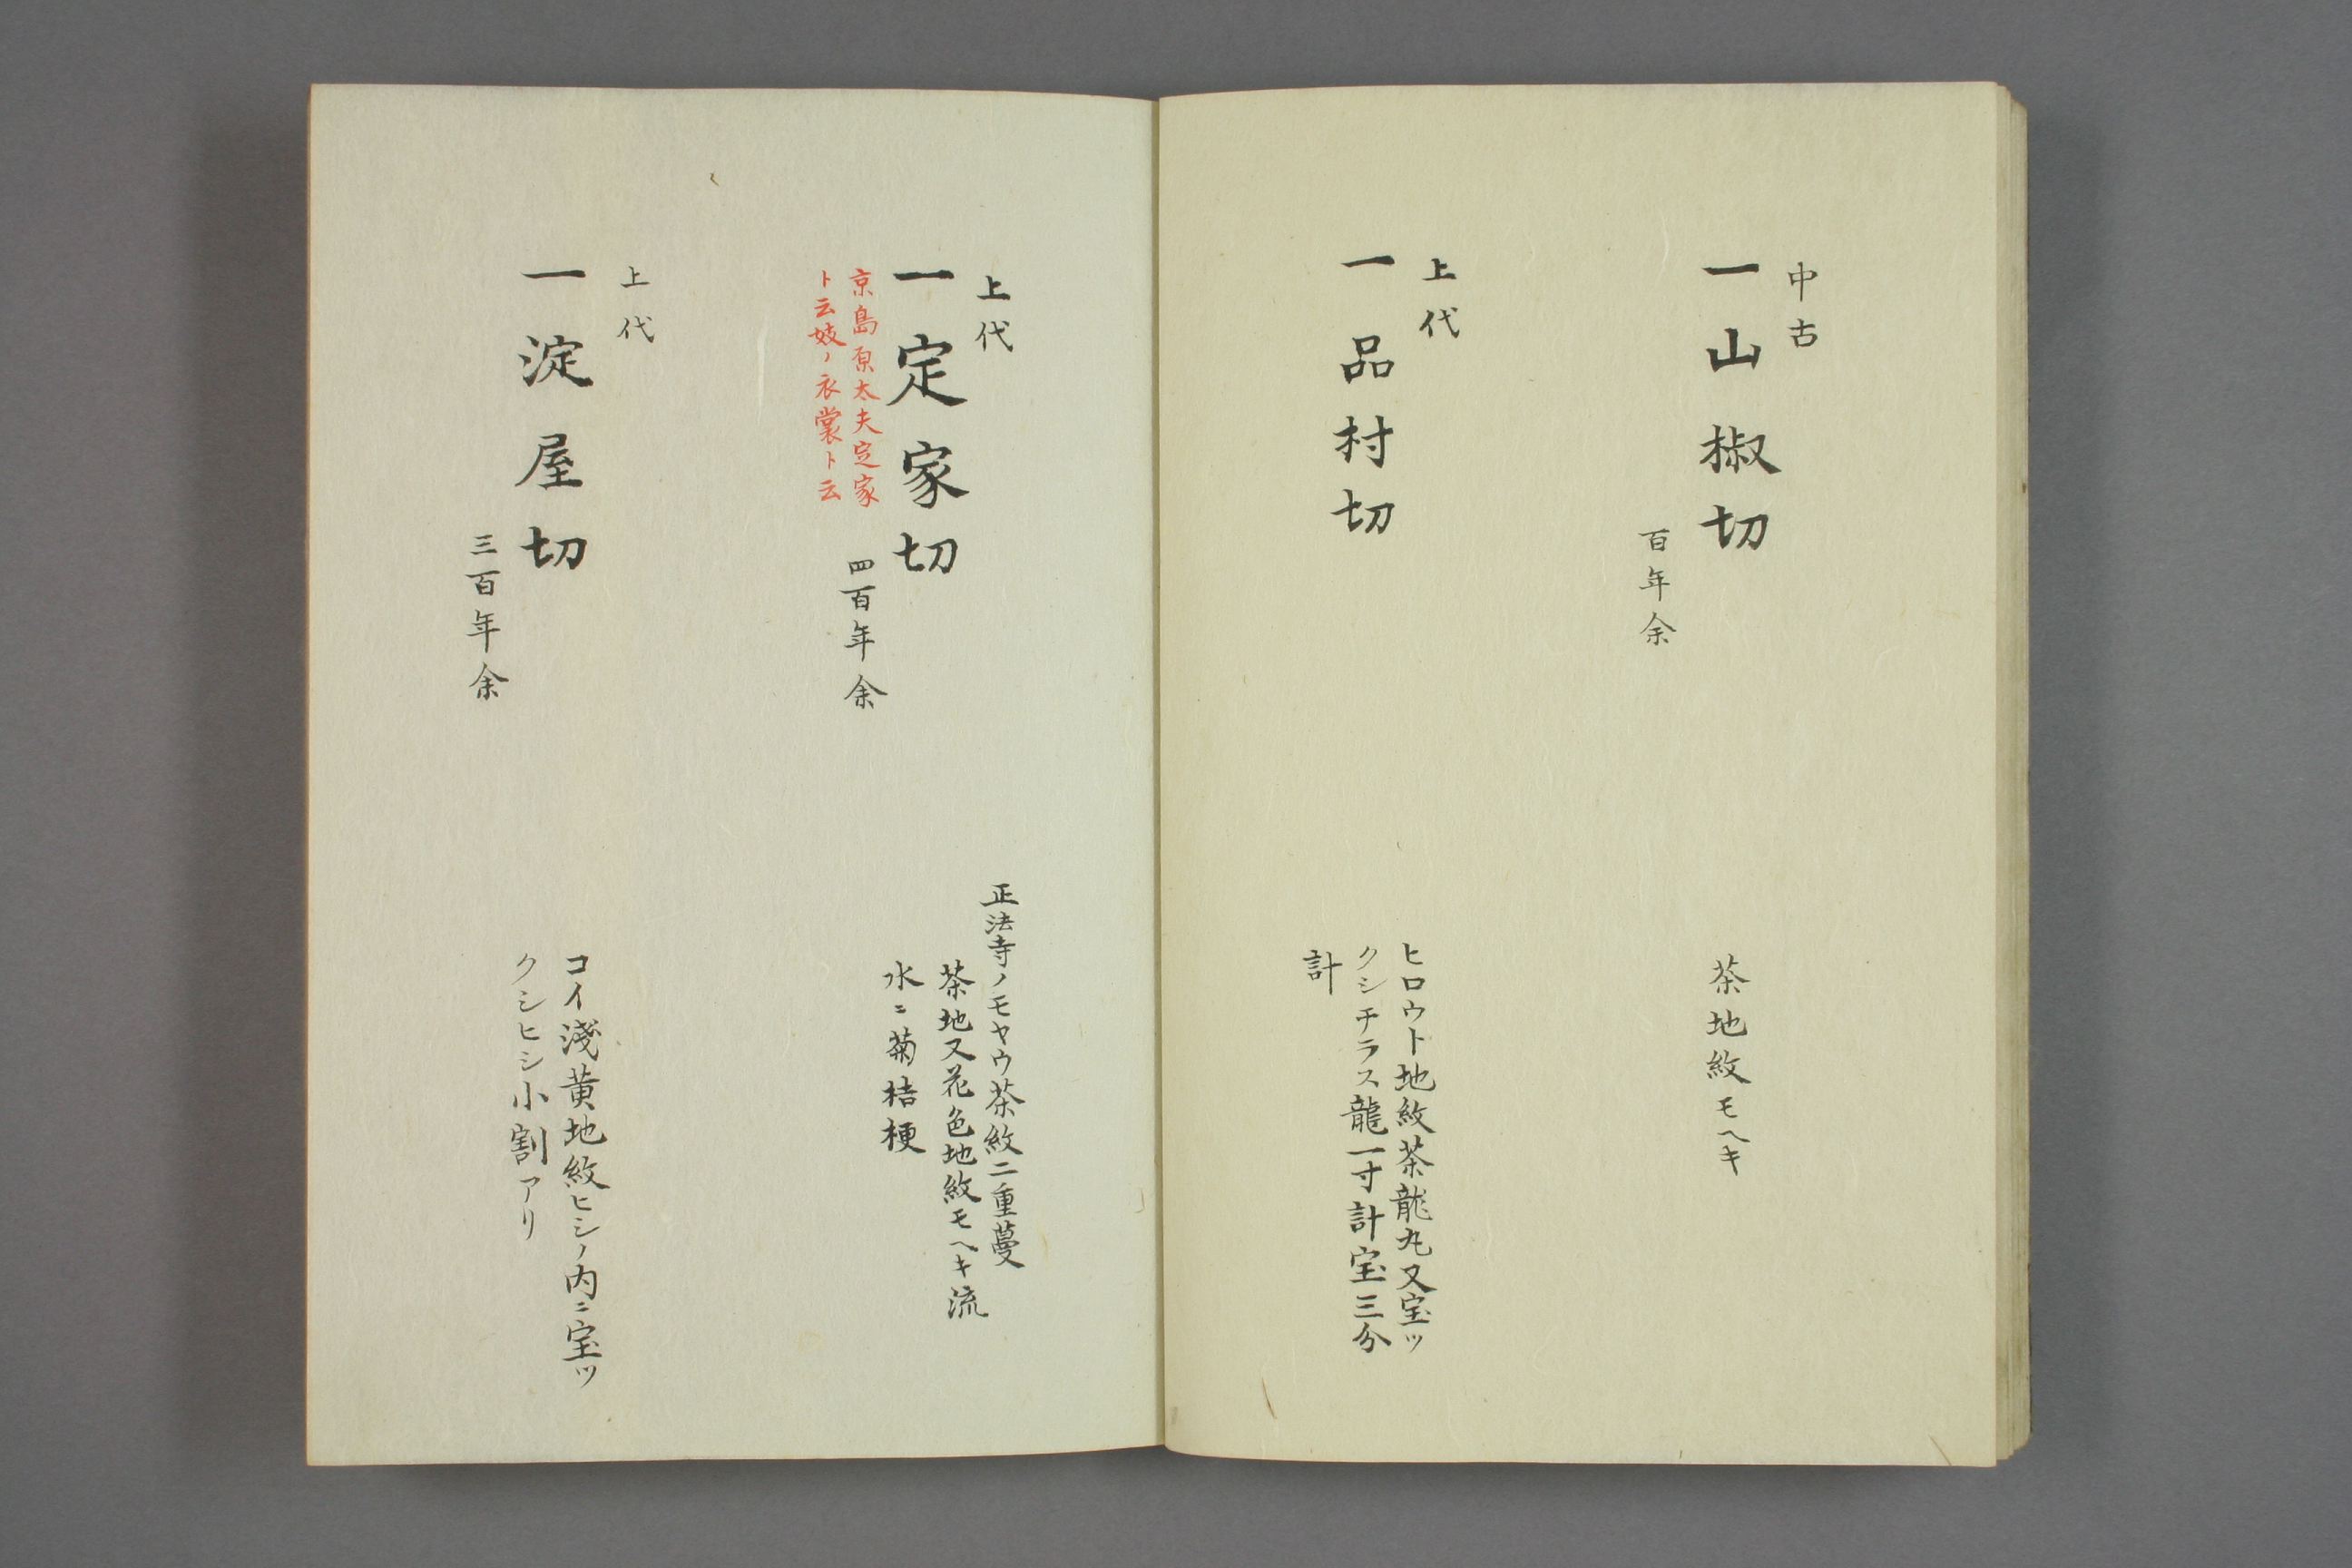 中古
一山椒切
百年余
茶地紋モヘキ
上代
一品村切
ヒロウト地紋茶龍丸又宝ツ
クシチラス龍一寸計宝三分
計
上代
一定家切
京島原太夫定家
ト云妓ノ衣裳ト云
四百年余
正法寺ノモヤウ茶紋二重蔓
茶地又花色地紋モヘキ流
水ニ菊桔梗
上代
一淀屋切
三百年余
コイ淺黄地紋ヒシノ内ニ宝ツ
クシヒシ小割アリ